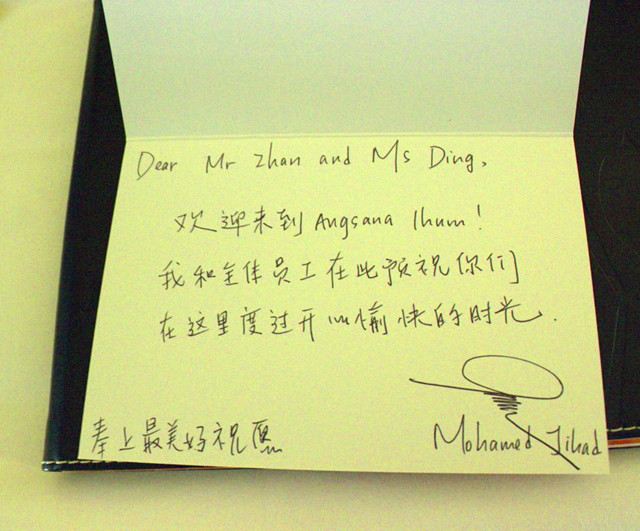 Dear Mr Zhan and Ms Ding,
欢迎来到 Angsana Ihuru!
我和全体员工在此预祝你们
在这里度过开心愉快的时光.
奉上最美好祝愿
Mohamed Jihad